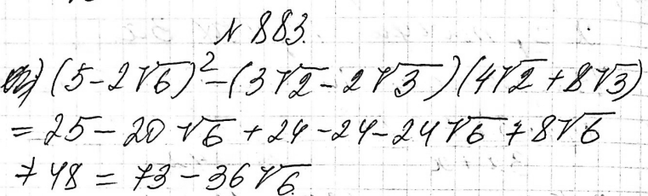 № 883.
а) (5-2√6)²-(3√2-2√3)(4√2+8√3)
=25-20√6+24-24-24√6+8√6
+48=73-36√6